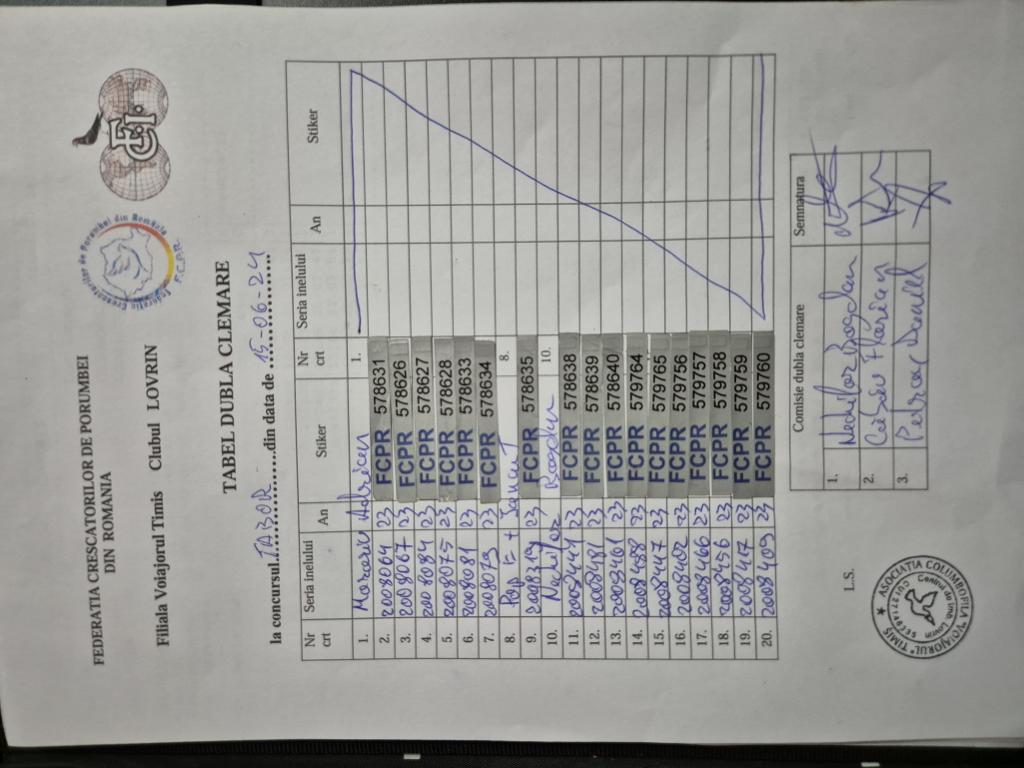 FEDERATIA CRESCATORILOR DE PORUMBEI
DIN ROMANIA
Filiala Voiajorul Timis Clubul LOVRIN
Federația Crescătorilor de Porumbei din România
F.C.P.R.
FCI
TABEL DUBLA CLEMARE
la concursul TABOR din data de 15-06-24
Nr crt Seria inelului An Stiker Nr crt Seria inelului An Stiker
1. Adrian 1.
2. 2008064 23 FCPR 578631
3. 2008067 23 FCPR 578626
4. 2008084 23 FCPR 578627
5. 2008075 23 FCPR 578628
6. 2008081 23 FCPR 578633
7. 2008079 23 FCPR 578634
8. Pap E + 8.
9. 2008319 23 FCPR 578635
10. Nechifor Bogdan 10.
11. 2008444 23 FCPR 578638
12. 2008481 23 FCPR 578639
13. 2008461 23 FCPR 578640
14. 2008488 23 FCPR 579764
15. 2008447 23 FCPR 579765
16. 2008402 23 FCPR 579756
17. 2008466 23 FCPR 579757
18. 2008456 23 FCPR 579758
19. 2008417 23 FCPR 579759
20. 2008409 23 FCPR 579760
Comisie dubla clemare Semnatura
1. Nechifor Bogdan
2. Florian
3.
L.S.
ASOCIATIA COLUMBOFILA "VOIAJORUL" TIMIS
Centrul de imb. Lovrin